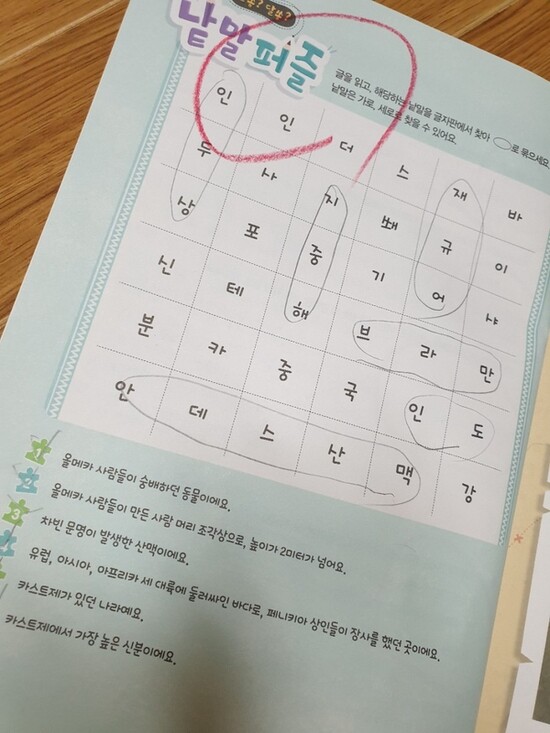 낱말퍼즐
글을 읽고, 해당하는 낱말을 글자판에서 찾아 ○로 묶으세요.
낱말은 가로, 세로로 찾을 수 있어요.
인 인 더 스 재 바
두 사 지 쐐 규 이
상 포 중 기 어 샤
신 테 해 브 라 만
분 카 중 국 인 도
안 데 스 산 맥 강
1 올메카 사람들이 숭배하던 동물이에요.
2 올메카 사람들이 만든 사람 머리 조각상으로, 높이가 2미터가 넘어요.
3 차빈 문명이 발생한 산맥이에요.
유럽, 아시아, 아프리카 세 대륙에 둘러싸인 바다로, 페니키아 상인들이 장사를 했던 곳이에요.
카스트제가 있던 나라예요.
카스트제에서 가장 높은 신분이에요.